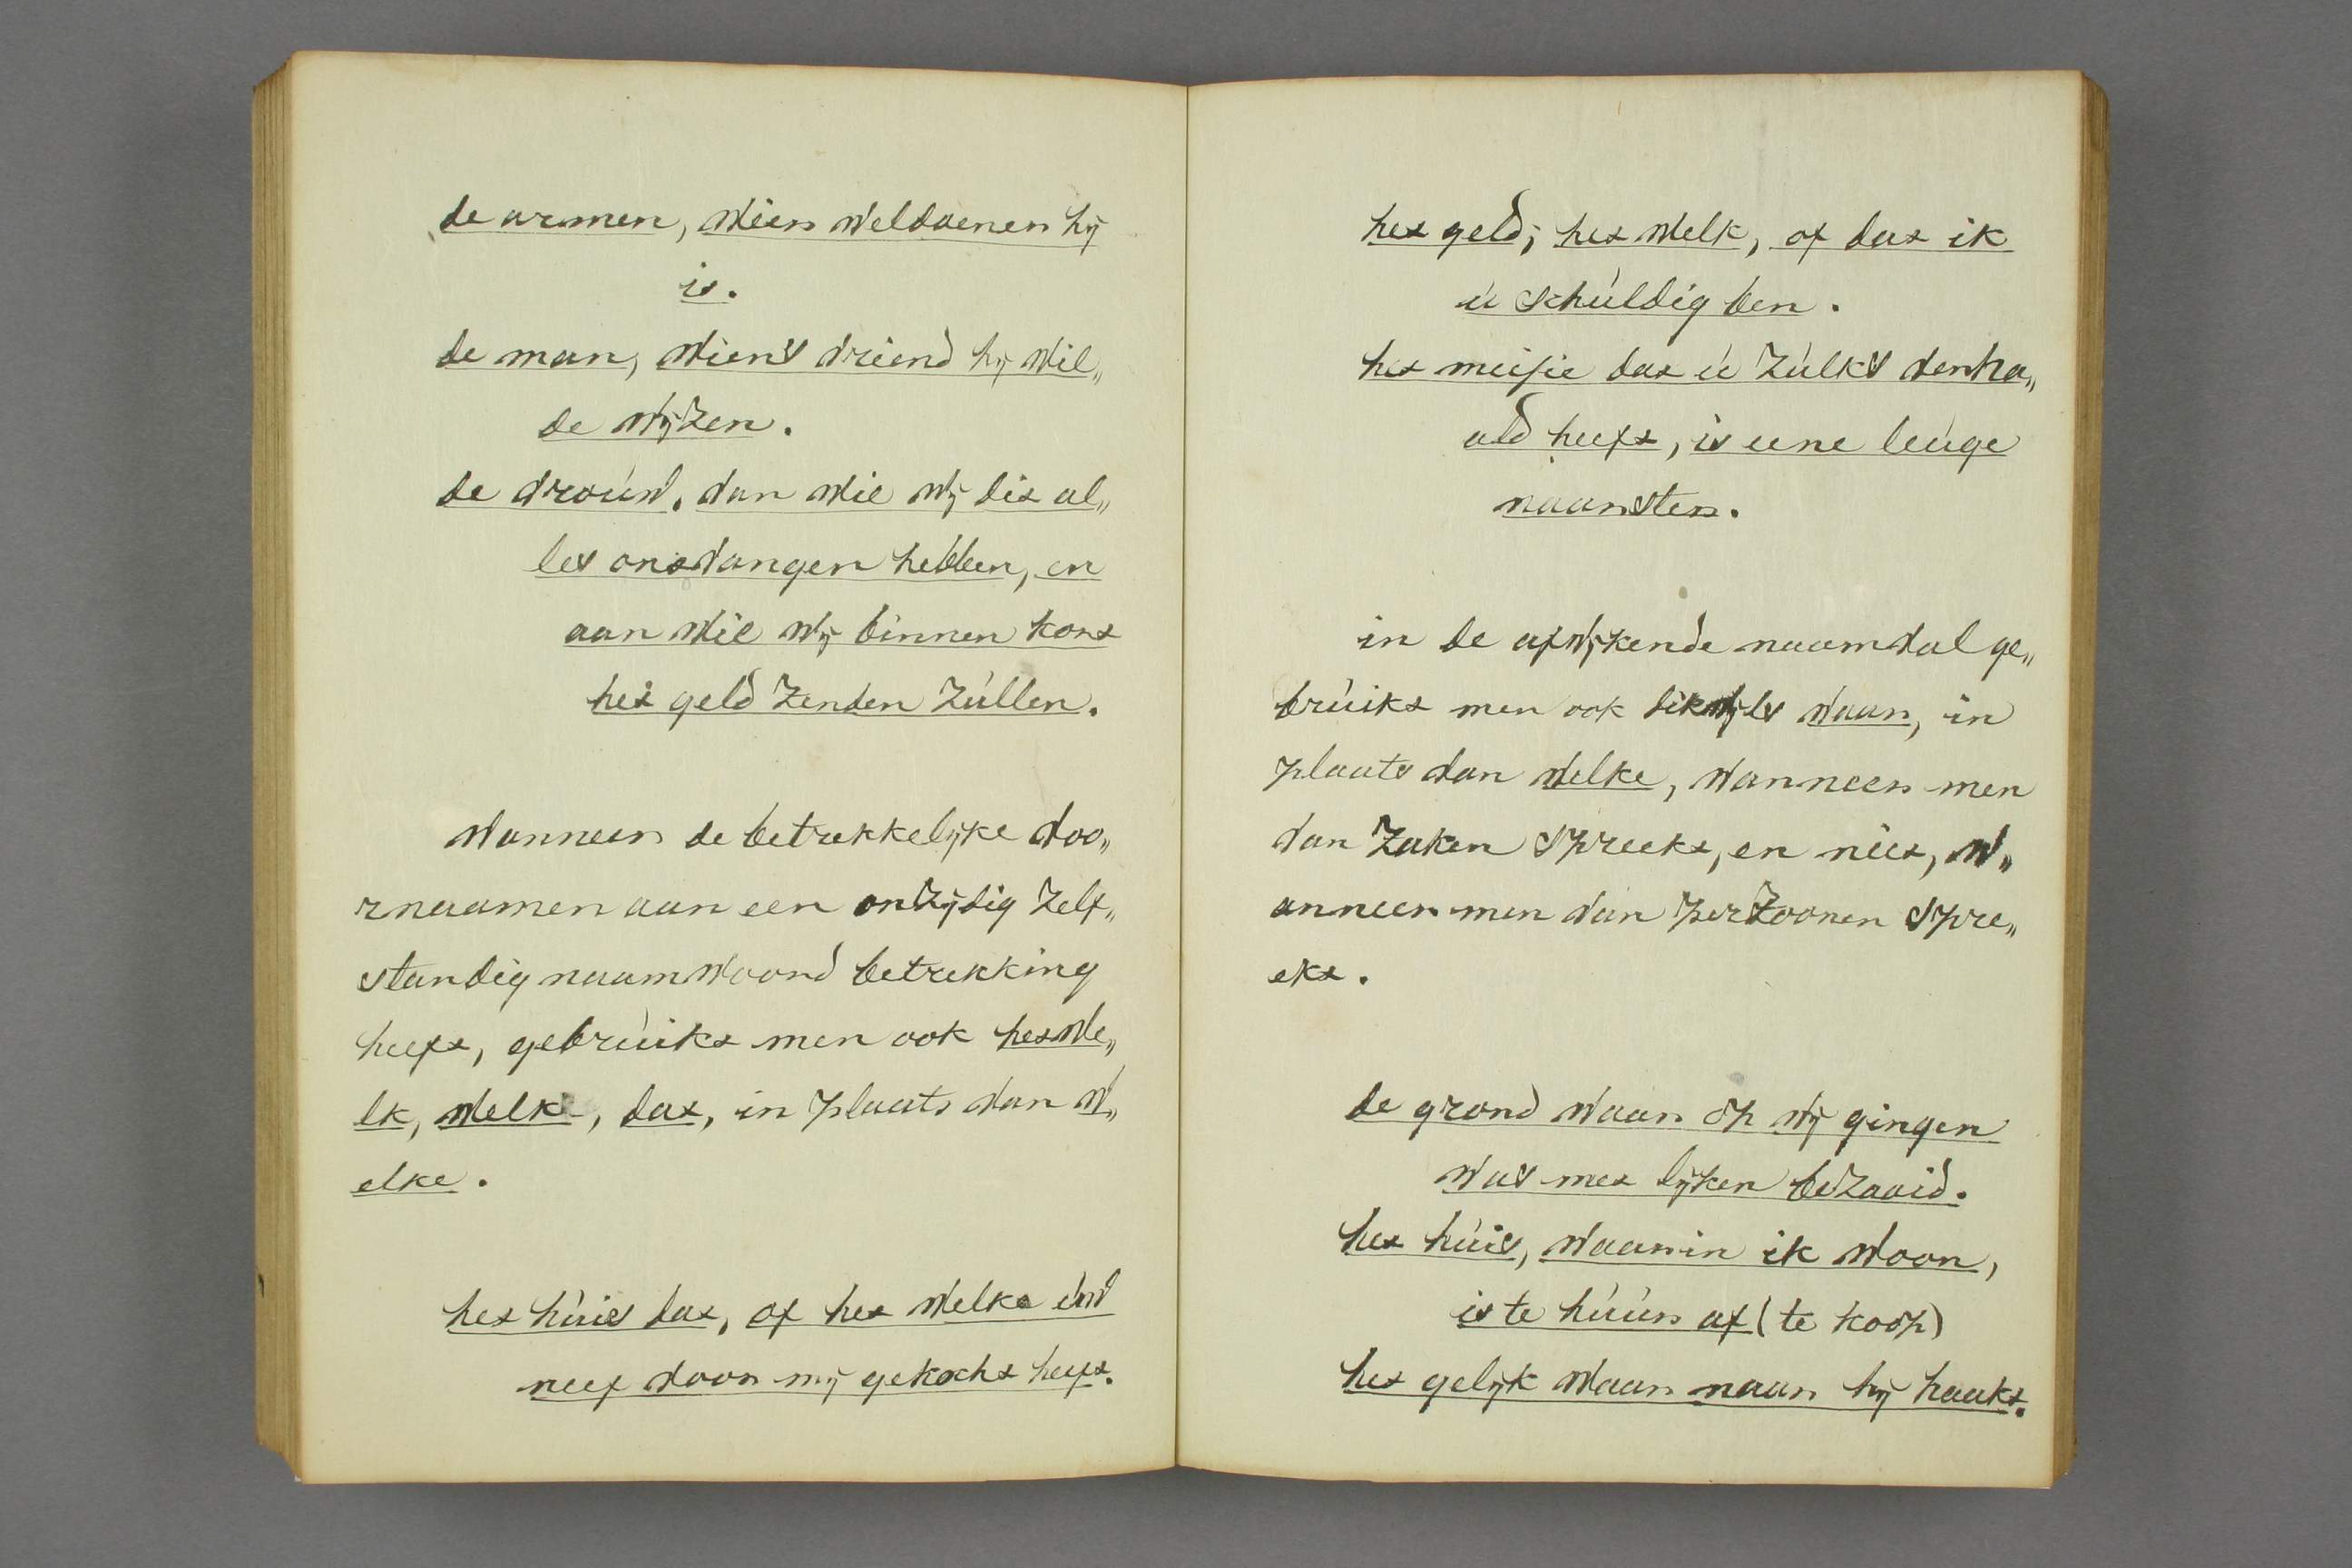 de armen, wier weldoener hij
is.
de man, wiens vriend hij wil„
de wijzen.
de vrouw, van wie wij dit al„
les ontvangen hebben, en
aan wie wij binnen kort
het geld zenden zullen.
wanneer de betrekkelijke voo„
rnaamen aan een onzijdig zelf„
standig naamwoord betrekking
heeft, gebruikt men ook hetwe„
lk, welk, dat, in plaats van w„
elke.
het huis dat, of het welke uw
neef voor mij gekocht heeft.
het geld; het welk, of dat ik
u schuldig ben.
het meisje dat u zulks verha„
ald heeft, is eene leuge
naarster.
in de afwijkende naamval ge„
bruikt men ook dikwijls waar, in
plaats van welke, wanneer men
van zaken spreekt, en niet, w„
anneer men van perzoonen spre„
ekt.
de grond waar op wij gingen
was met lijken bezaaid.
het huis, waarin ik woon,
is te huur af (te koop)
het gelijk waar naar hij haakt.